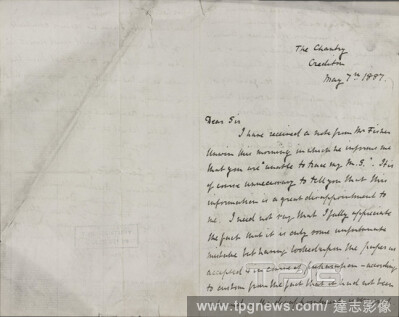 The Chantry
Crediton
May 7th 1887.
Dear Sir
I have received a note from Mr Fisher
Unwin this morning in which he informs me
that you are "unable to trace my M.S." It is
of course unnecessary to tell you that this
information is a great disappointment to
me. I need not say that I fully appreciate
the fact that it is only some unfortunate
mistake but having looked upon the paper as
accepted & in course of preparation - according
to custom from the fact that it had not been
www.tpgnews.com / 達志影像